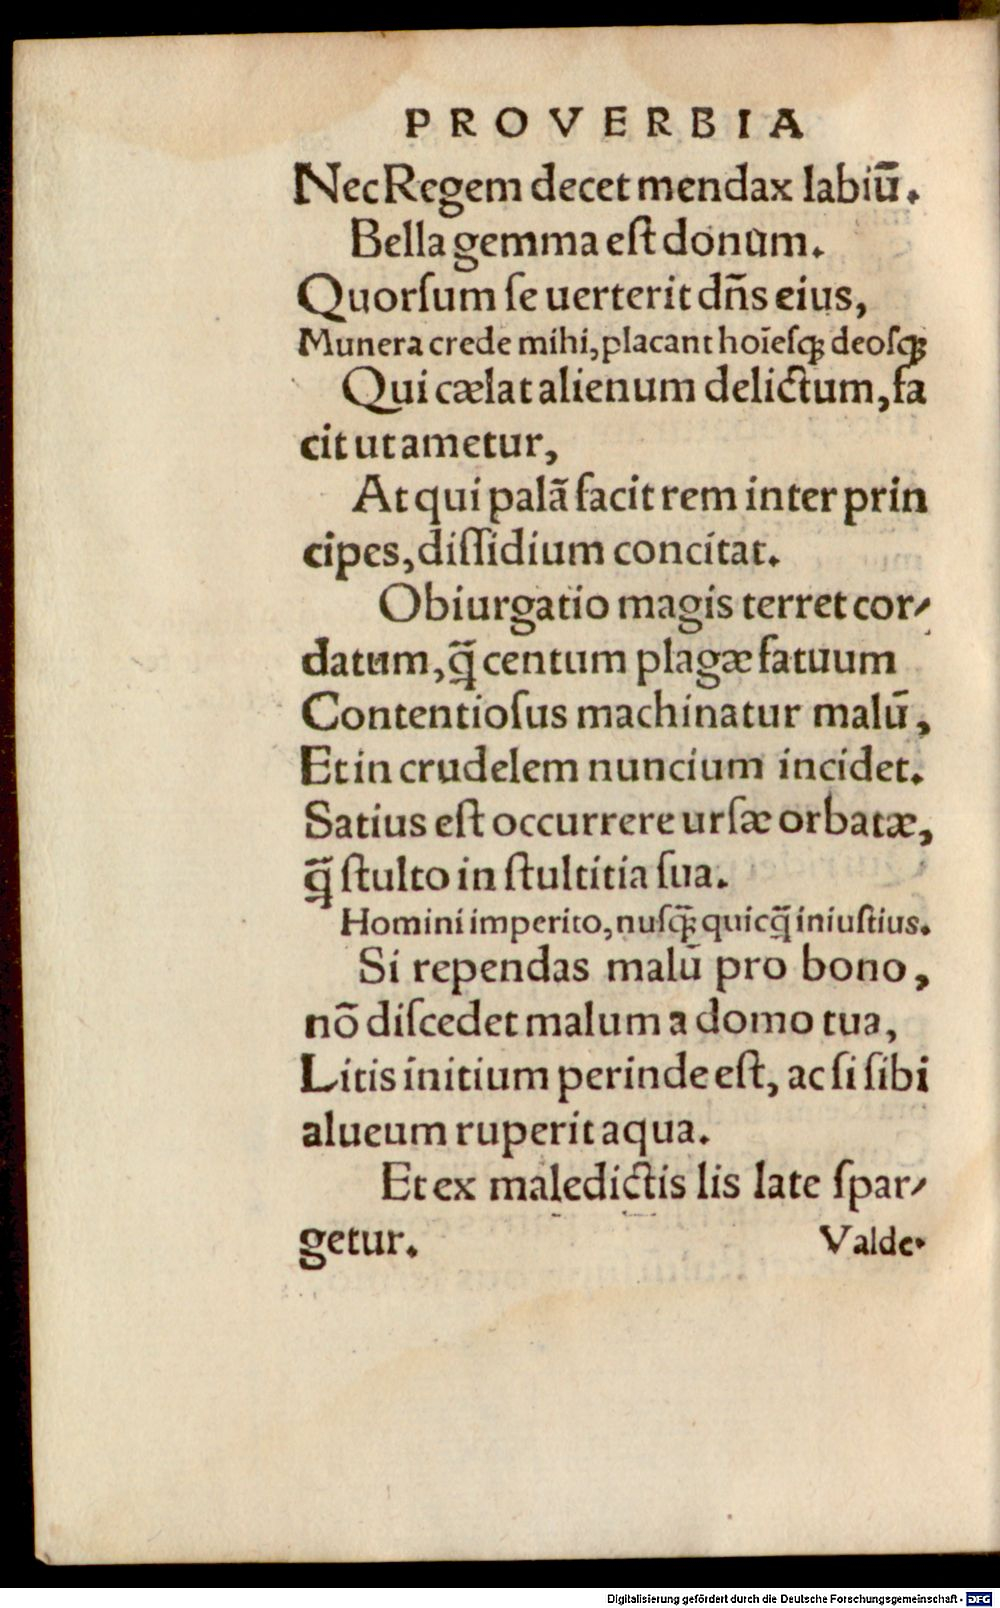 PROVERBIA
Nec Regem decet mendax labiū.
Bella gemma est donum.
Quorſum ſe uerterit dn̄s eius,
Munera crede mihi, placant hoīeſq; deoſq;
Qui cælat alienum delictum, fa
cit ut ametur,
At qui palā facit rem inter prin
cipes, diſſidium concitat.
Obiurgatio magis terret cor⸗
datum, q̄ centum plagæ fatuum
Contentioſus machinatur malū,
Et in crudelem nuncium incidet.
Satius eſt occurrere urſæ orbatæ,
q̄ ſtulto in ſtultitia ſua.
Homini imperito, nuſq̄; quicq̄ iniuſtius.
Si rependas malū pro bono,
nō diſcedet malum a domo tua,
Litis initium perinde eſt, ac ſi ſibi
alueum ruperit aqua.
Et ex maledictis lis late ſpar⸗
getur. Valde
Digitalisierung gefördert durch die Deutsche Forschungsgemeinschaft - DFG